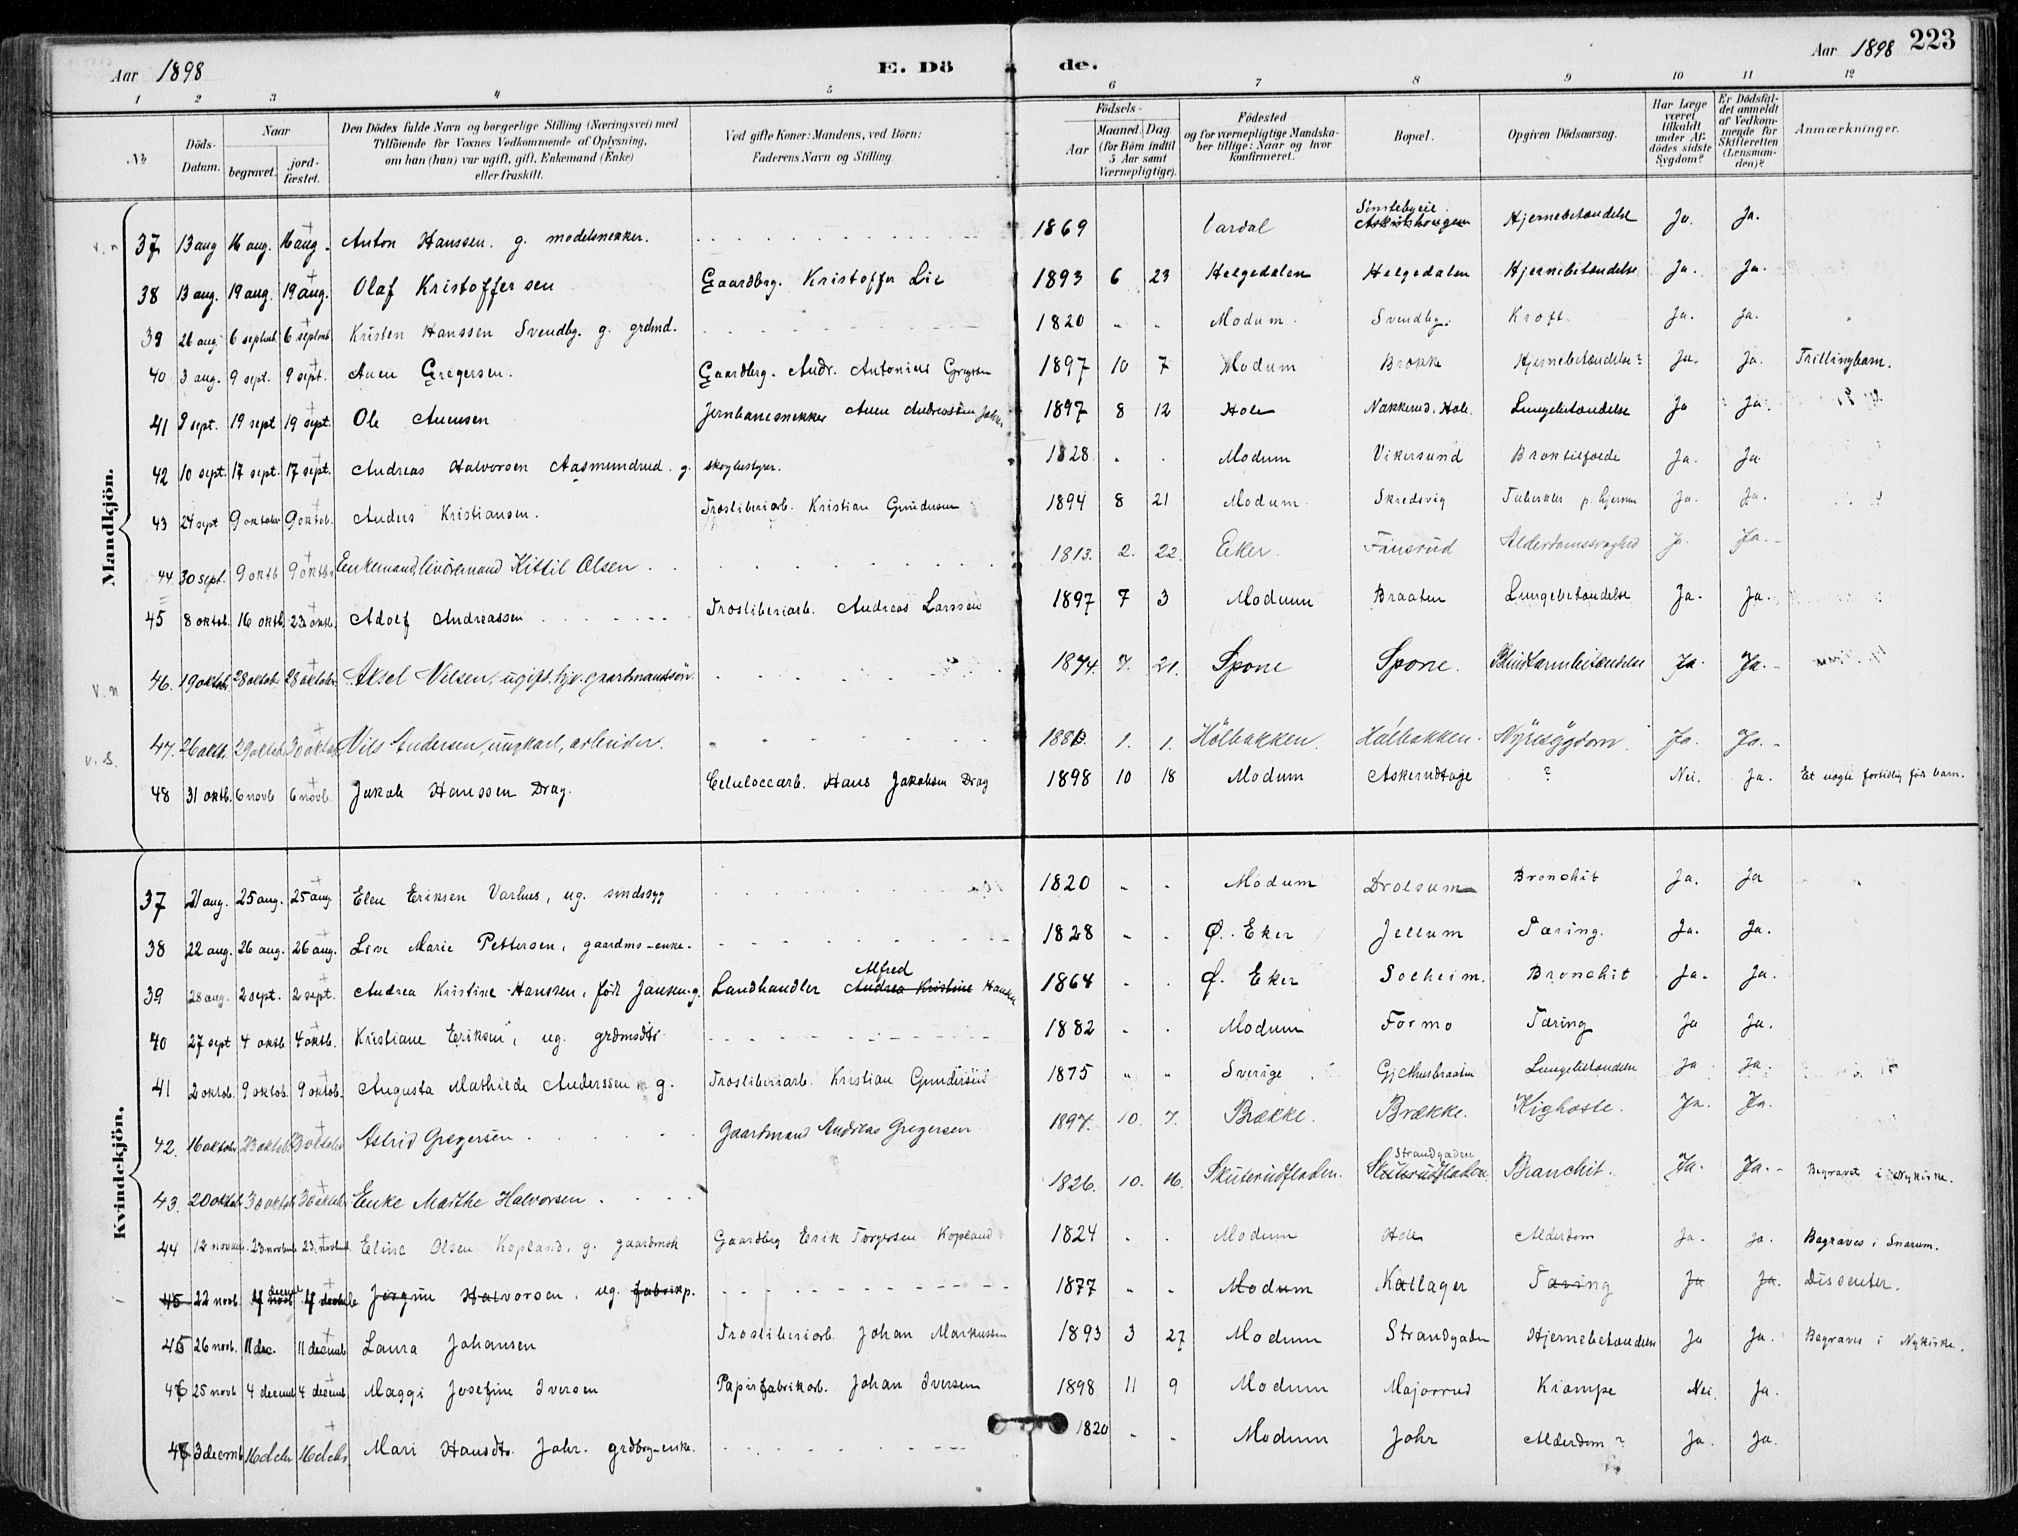 Aar 1898 E. Dö de. Aar 1898 223
1 2 3 4 5 6 7 8 9 10 11 12
No
Döds-Datum.
Naar
begravet.
jord-fæstet.
Den Dödes fulde Navn og borgerlige Stilling (Næringsvei) med
Tilföiende for Voxnes Vedkommende af Oplysning,
om han (hun) var ugift, gift, Enkemand (Enke)
eller fraskilt.
Ved gifte Koner: Mandens, ved Börn:
Faderens Navn og Stilling.
Födsels-
Aar
Maaned. Dag.
(for Börn indtil
5 Aar samt
Værnepligtige).
Födested
og for værnepligtige Mandska-
ber tillige: Naar og hvor
konfirmeret.
Bopæl.
Opgiven Dödsaarsag.
Har Læge
været
tilkaldt
under Af-
dödes sidste
Sygdom?
Er Dödsfal-
det anmeldt
af Vedkom-
mende for
Skifteretten
(Lensman-
den)?
Anmærkninger.
Mandkjön.
37 13 aug 16 aug. 16 aug. Anton Hanssen. g. modelsnekker. 1869 Vardal Hjernebetændelse Ja. Ja.
38 13 aug. 19 aug. 19 aug. Olaf Kristoffersen Gaardbrg. Kristoffer Lie 1893 6 23 Helgedalen Helgedalen Hjernebetændelse Ja. Ja.
39 26 aug 6 septemb. 6 septemb. Kristen Hanssen Svendby. g. grdmd. 1820 - - Modum. Svendby. Kroft Ja. Ja.
40 3 aug. 9 sept. 9 sept. Auen Gregersen. Gaardbrg. Andr. Antonius Gregersen 1897 10 7 Modum Brække Hjernebetændelse? Ja. Ja. Trillingbarn.
41 9 sept. 19 sept 19 sept. Ole Auensen Jernbanesnekker Auen Andreassen 1897 8 12 Hole Nakkerud. Hole. Lungebetændelse Ja Ja.
42 10 sept. 17 sept. 17 sept. Andreas Halvorsen Aasmundrud. g. skogbestyrer. 1828 . . Modum Vikersund Braktilfælde Ja. Ja
43 24 sept 9 oktober 9 oktob. Anders Kristiansen. Træsliberiarb. Kristian Gundersen 1894 8 21 Modum. Skredsvig Tuberkler p. hjernen Ja. Ja.
44. 30 sept. 9 oktb 9 oktbr Enkemand, livöremand Kittil Olsen 1813. 2. 22. Eker. Finsrud Alderdomssvaghed Ja. Ja.
45 8 oktob. 16 oktb. 23 oktb. Adolf Andreassen Træsliberiarb. Andreas Larssen 1897 7 3 Modum Braaten Lungebetændelse Ja. Ja.
v. n 46. 19 oktob. 28 oktob. 28 oktober. Aksel Nilsen, ugift, hjv. gaardmandssön. 1874. 7. 21. Spone Spone. Blindtarmbetændelse Ja. Ja.
v. s. 47. 26 oktb. 29 oktob. 30 oktob. Nils Andersen, ungkarl, arbeider. 1. 1. Hölbakken. Hölbakken. Nyresygdom. Ja. Ja.
48 31 oktb. 6 novb 6 novb. Jakob Hanssen Drag. Celuloscearb. Hans Jakobsen Drag 1898 10 18 Modum Askerudtage ? Nei. Ja. Et nogle fortidlig född barn.
Kvindekjön.
37 21 aug. 25 aug. 25 aug. Elen Eriksen Varhus, ug. sindssyg 1820 - . Modum Drolsum Bronchit Ja. Ja
38 22 aug. 26 aug. 26 aug. Live Marie Pettersen, gaardms-enke. 1828 - . Ø. Eker Jellum Tæring. Ja. Ja.
39 28 aug. 2 sept. 2 sept. Andrea Kristine Hanssen, född Jansen. g. Landhandler Alfred Andrea Kristine Hanssen 1864 . . Ø. Eker Solheim. Bronchit Ja. Ja.
40 27 sept 4 oktb 4 oktb. Kristiane Eriksen, ug. grdmsdtr 1882 . . Modum Formo Tæring Ja Ja.
41 2 oktob. 9 oktob. 9 oktob. Augusta Mathilde Anderssen g. Træsliberiarb. Kristian Gundersen 1875 " " Sverige Lungebetændelse Ja Ja.
42. 16 oktober 23 oktob 23 oktober Astrid Gregersen Gaardmand Andreas Gregersen 1897. 10. 7. Brække. Brække. Kighoste. Ja. Ja.
43. 20 oktob. 30 oktob. 30 oktob. Enke Marthe Halvorsen 1826. 10. 16. Skuterudfladen. Strandgaden Skuterudfladen Branchit. Ja. Ja. Begravet i Nykirke.
44 12 novemb. 23 novbr 23. novbr Eline Olsen Kopland, g. gaardmsk Gaardbrg Erik Torgersen Kopland 1824 . . Modum Hole Alderdom Ja. Ja. Begraves i Snarum.
45 22 novb. 4 decmb 4 decmb Jörgine Halvorsen. ug. fabrikp. 1877 - - Modum Kallager Tæring Ja Ja. Dissenter.
45 26 novb. 11 dec. 11 decmb Laura Johansen Træsliberiarb. Johan Markussen 1893 3 27 Modum Strandgaden Hjernebetændelse Ja Ja. Begraves i Nykirke.
46 25 novb 4 decmb 4 decmb. Maggi Josefine Iversen Papirfabrikarb. Johan Iversen 1898 11 9 Modum Majorrud Krampe Nei. Ja.
47 3 decmb 16 decbr 16 decbr. Mari Hansdtr. Johr. grdbrg-enke. 1820 - . Modum Johr Alderdom? Ja. Ja.